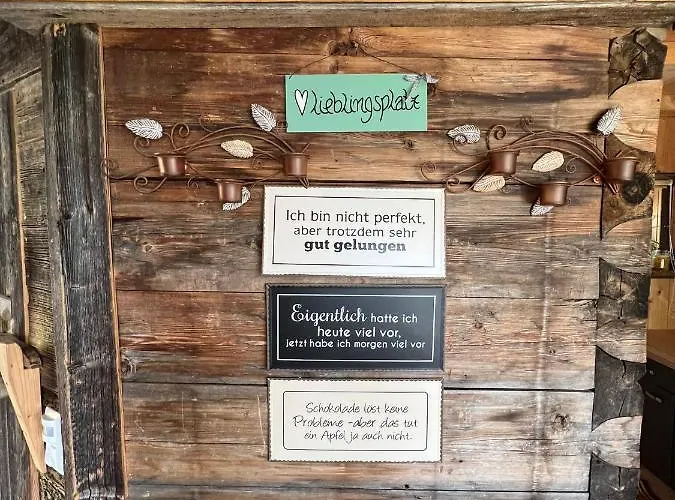 lieblingsplatz
Ich bin nicht perfekt,
aber trotzdem sehr
gut gelungen
Eigentlich hatte ich
heute viel vor,
jetzt habe ich morgen viel vor
Schokolade löst keine
Probleme -aber das tut
ein Apfel ja auch nicht.